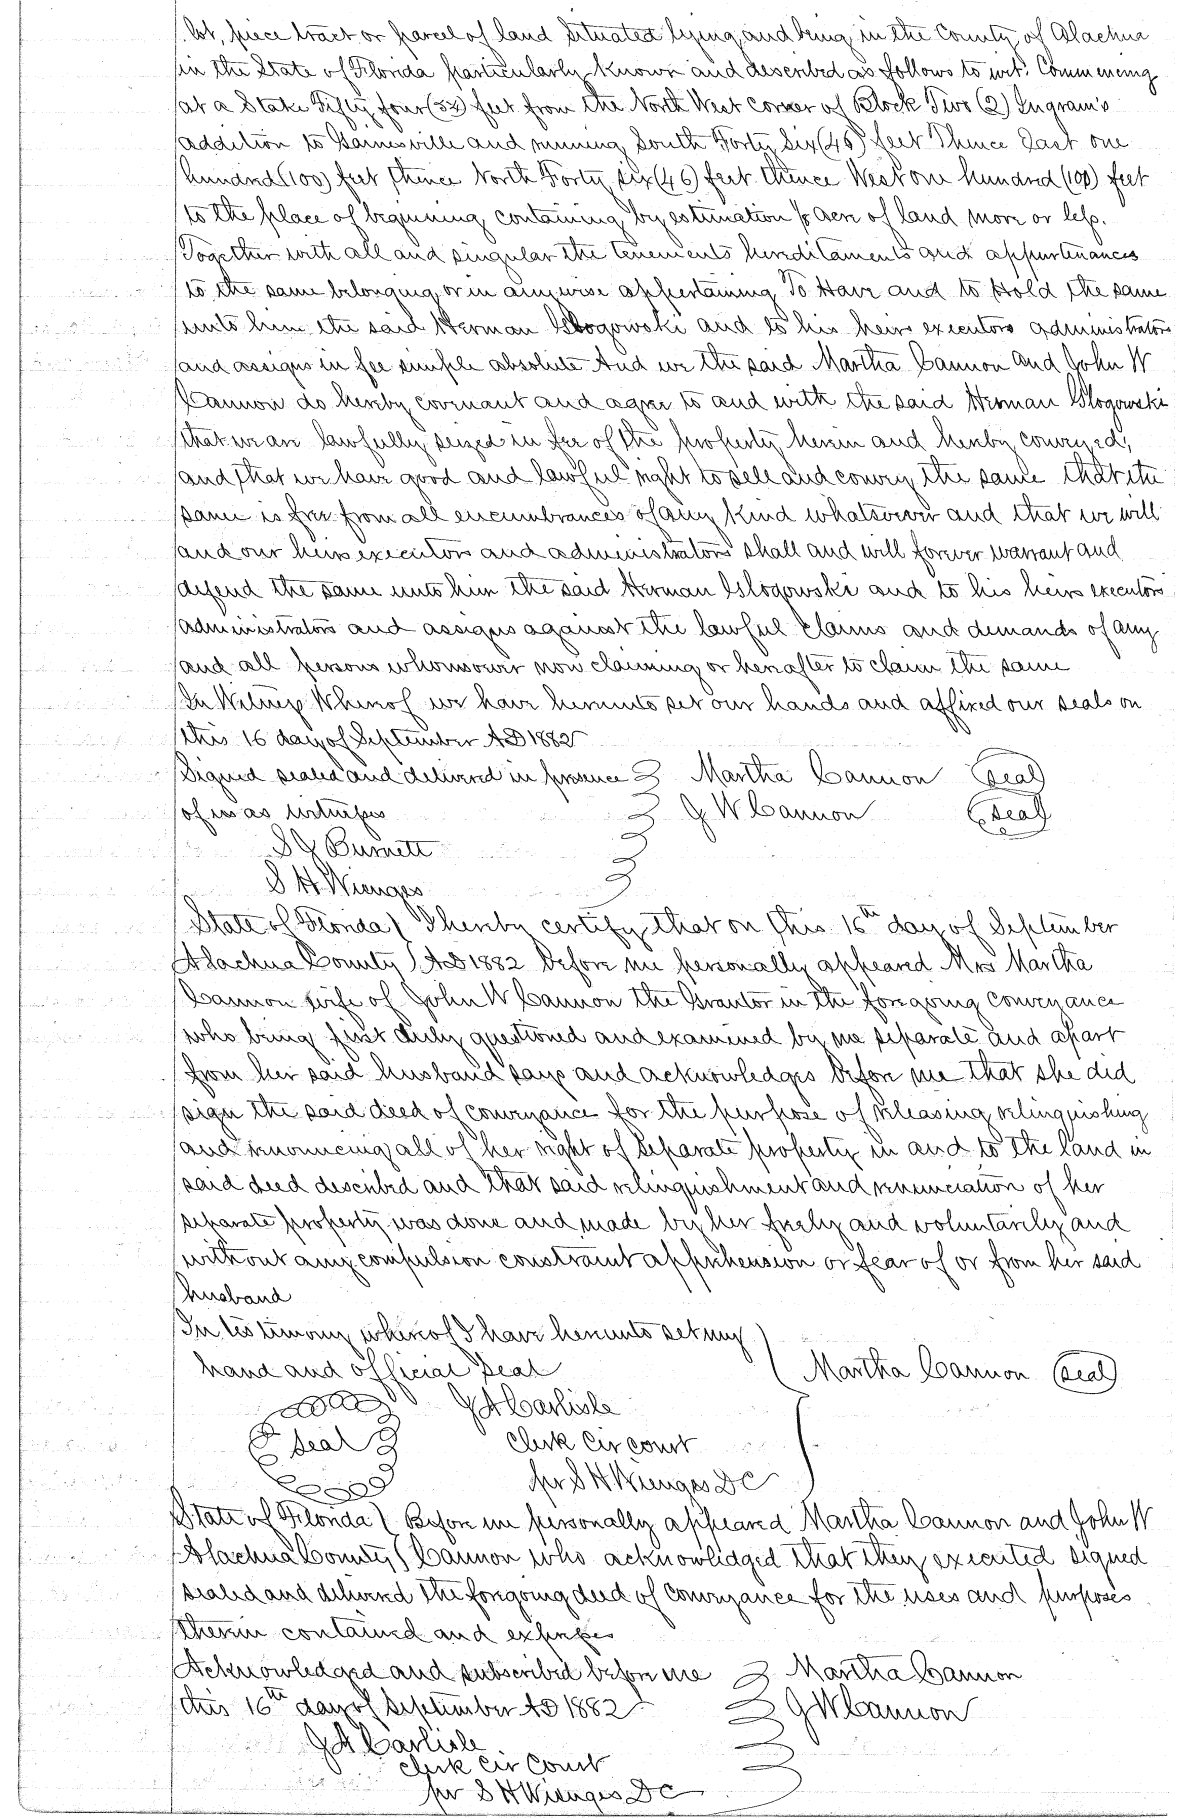 lot, piece tract or parcel of land situated lying and being in the County of Alachua
in the State of Florida particularly known and described as follows to wit: Commencing
at a Stake Fifty four (54) feet from the North West corner of Block Two (2) Ingram's
addition to Gainesville and running South Forty Six (46) feet Thence East one
hundred (100) feet thence North Forty six (46) feet thence West one hundred (100) feet
to the place of beginning containing by estimation acre of land more or less.
Together with all and singular the tenements hereditaments and appurtenances
to the same belonging or in anywise appertaining To Have and to Hold the same
unto him the said Herman Glogowski and to his heirs executors administrators
and assigns in fee simple absolute And we the said Martha Cannon and John W
Cannon do hereby covenant and agree to and with the said Herman Glogowski
that we are lawfully seized in fee of the property herein and hereby conveyed,
and that we have good and lawful right to sell and convey the same that the
same is free from all encumbrances of any kind whatsoever and that we will
and our heirs executors and administrators shall and will forever warrant and
defend the same unto him the said Herman Glogowski and to his heirs executors
administrators and assigns against the lawful claims and demands of any
and all persons whomsoever now claiming or hereafter to claim the same
In Witness Whereof we have hereunto set our hands and affixed our seals on
this 16 day of September AD 1882
Signed sealed and delivered in presence Martha Cannon Seal
of us as witnesses J W Cannon Seal
S J Burnett
S H Wienges
State of Florida } I hereby certify that on this 16th day of September
Alachua County } AD 1882 before me personally appeared Mrs Martha
Cannon wife of John W Cannon the Grantor in the foregoing conveyance
who being first duly questioned and examined by me separate and apart
from her said husband says and acknowledges before me that she did
sign the said deed of conveyance for the purpose of releasing relinquishing
and renouncing all of her right of separate property in and to the land in
said deed described and that said relinquishment and renunciation of her
separate property was done and made by her freely and voluntarily and
without any compulsion constraint apprehension or fear of or from her said
husband
In testimony whereof I have hereunto set my
hand and official seal Martha Cannon Seal
J A Carlisle
Seal Clerk Cir court
per S H Wienges DC
State of Florida } Before me personally appeared Martha Cannon and John W
Alachua County } Cannon who acknowledged that they executed signed
sealed and delivered the foregoing deed of conveyance for the uses and purposes
therein contained and expresses
Acknowledged and subscribed before me Martha Cannon
this 16th day of September AD 1882 J W Cannon
J A Carlisle
clerk Cir Court
per S H Wienges DC